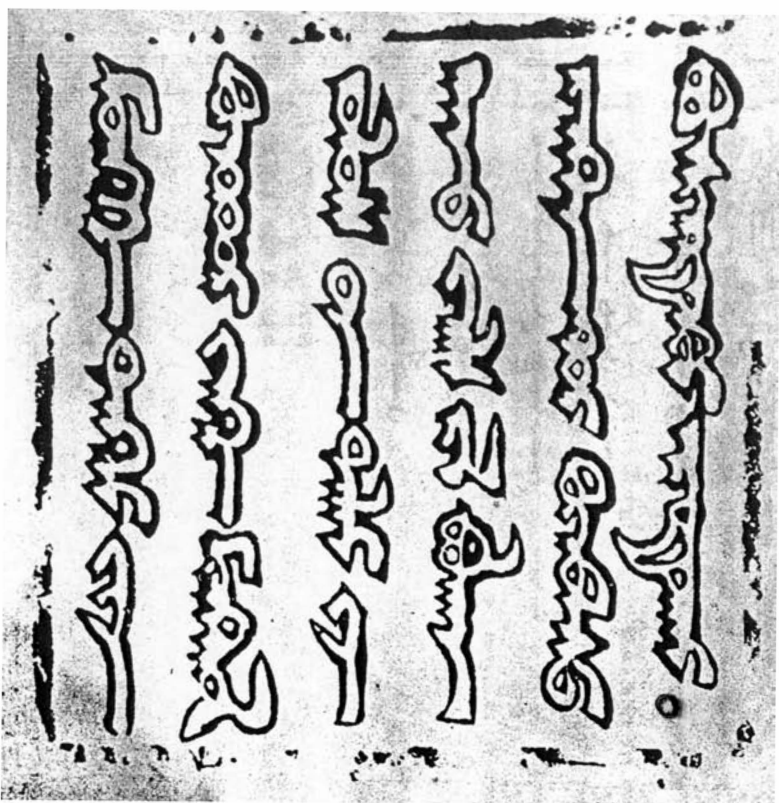 ᠮᠥᠩᠬᠡ ᠲᠩᠷᠢ ᠶᠢᠨ
ᠬᠦᠴᠦᠨᠳᠦᠷ ᠶᠡᠬᠡ ᠮᠣᠩᠭᠣᠯ
ᠤᠯᠤᠰ ᠤᠨ ᠳᠠᠯᠠᠢ ᠶᠢᠨ
ᠬᠠᠨ ᠤ ᠵᠷᠯᠭ ᠢᠯ ᠪᠤᠯᠭᠠ
ᠢᠷᠭᠡᠨ ᠳᠦᠷ ᠬᠦᠷᠪᠡᠰᠦ
ᠪᠦᠰᠢᠷᠡᠲᠦᠭᠡᠢ ᠠᠶᠤᠲᠤᠭᠠᠢ